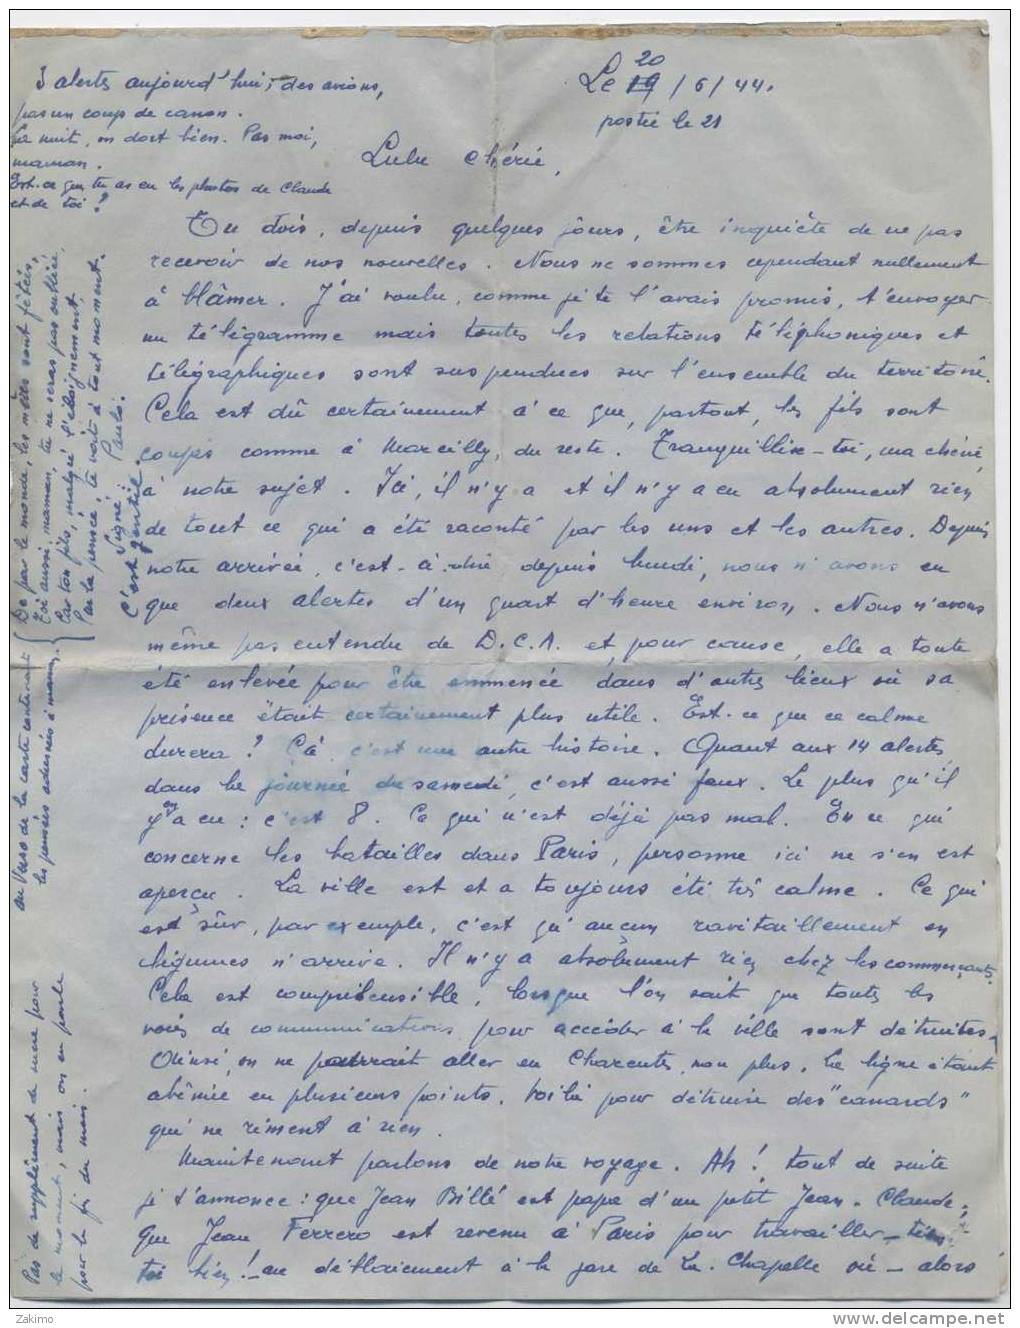 3 alertes aujourd'hui, des avions,
pas un coup de canon.
La nuit, on dort bien. Pas moi,
maman.
Est-ce que tu as eu les photos de Claude
et de toi ?
Le 19 20/6/44.
postée le 21
Lulu chérie,
Tu dois, depuis quelques jours, être inquiète de ne pas
recevoir de nos nouvelles. Nous ne sommes cependant nullement
à blâmer. J'ai voulu, comme je te l'avais promis, t'envoyer
un télégramme mais toutes les relations téléphoniques et
télégraphiques sont suspendues sur l'ensemble du territoire.
Cela est dû certainement à ce que, partout, les fils sont
coupés comme à Marcilly, du reste. Tranquillise-toi, ma chérie,
à notre sujet. Ici, il n'y a et il n'y a eu absolument rien
de tout ce qui a été raconté par les uns et les autres. Depuis
notre arrivée, c'est-à-dire depuis lundi, nous n'avons eu
que deux alertes d'un quart d'heure environ. Nous n'avons
même pas entendu de D.C.A. et, pour cause, elle a toute
été enlevée pour être emmenée dans d'autres lieux où sa
présence était certainement plus utile. Est-ce que ce calme
durera ? Çà c'est une autre histoire. Quant aux 14 alertes
dans la journée du samedi, c'est aussi faux. Le plus qu'il
y en a eu : c'est 8. Ce qui n'est déjà pas mal. En ce qui
concerne les batailles dans Paris, personne ici ne s'en est
aperçu. La ville est et a toujours été très calme. Ce qui
est sûr, par exemple, c'est qu'aucun ravitaillement en
légumes n'arrive. Il n'y a absolument rien chez les commerçants.
Cela est compréhensible, lorsque l'on sait que toutes les
voies de communications pour accéder à la ville sont détruites.
Ainsi, on ne pourrait aller en Charentes, non plus, la ligne étant
abîmée en plusieurs points. Voilà pour détruire des "canards"
qui ne riment à rien.
Maintenant parlons de notre voyage. Ah ! tout de suite
je t'annonce : que Jean Billé est papa d'un petit Jean-Claude ;
que Jean Ferrero est revenu à Paris pour travailler - tiens
toi bien ! - au déblaiement à la gare de La Chapelle où - alors
De par le monde, les mères sont fêtées,
Toi aussi, maman, tu ne seras pas oubliée
Par ton fils, malgré l'éloignement,
Par la pensée, te voit à tout moment.
Signé : Paulo.
C'est gentil.
au verso de la carte contenant
les pensées adressées à maman.
Pas de supplément de sucre pour
le moment, mais on en parle
pour la fin du mois.
Zakimo
delcampe.net